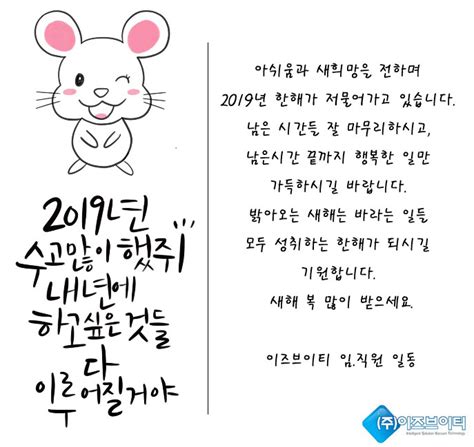 2019년
수고많이했쥐
내년에
하고싶은것들
다
이루어질거야
아쉬움과 새희망을 전하며
2019년 한해가 저물어가고 있습니다.
남은 시간들 잘 마무리하시고,
남은시간 끝까지 행복한 일만
가득하시길 바랍니다.
밝아오는 새해는 바라는 일들
모두 성취하는 한해가 되시길
기원합니다.
새해 복 많이 받으세요.
이즈브이티 임.직원 일동
(주)이즈브이티